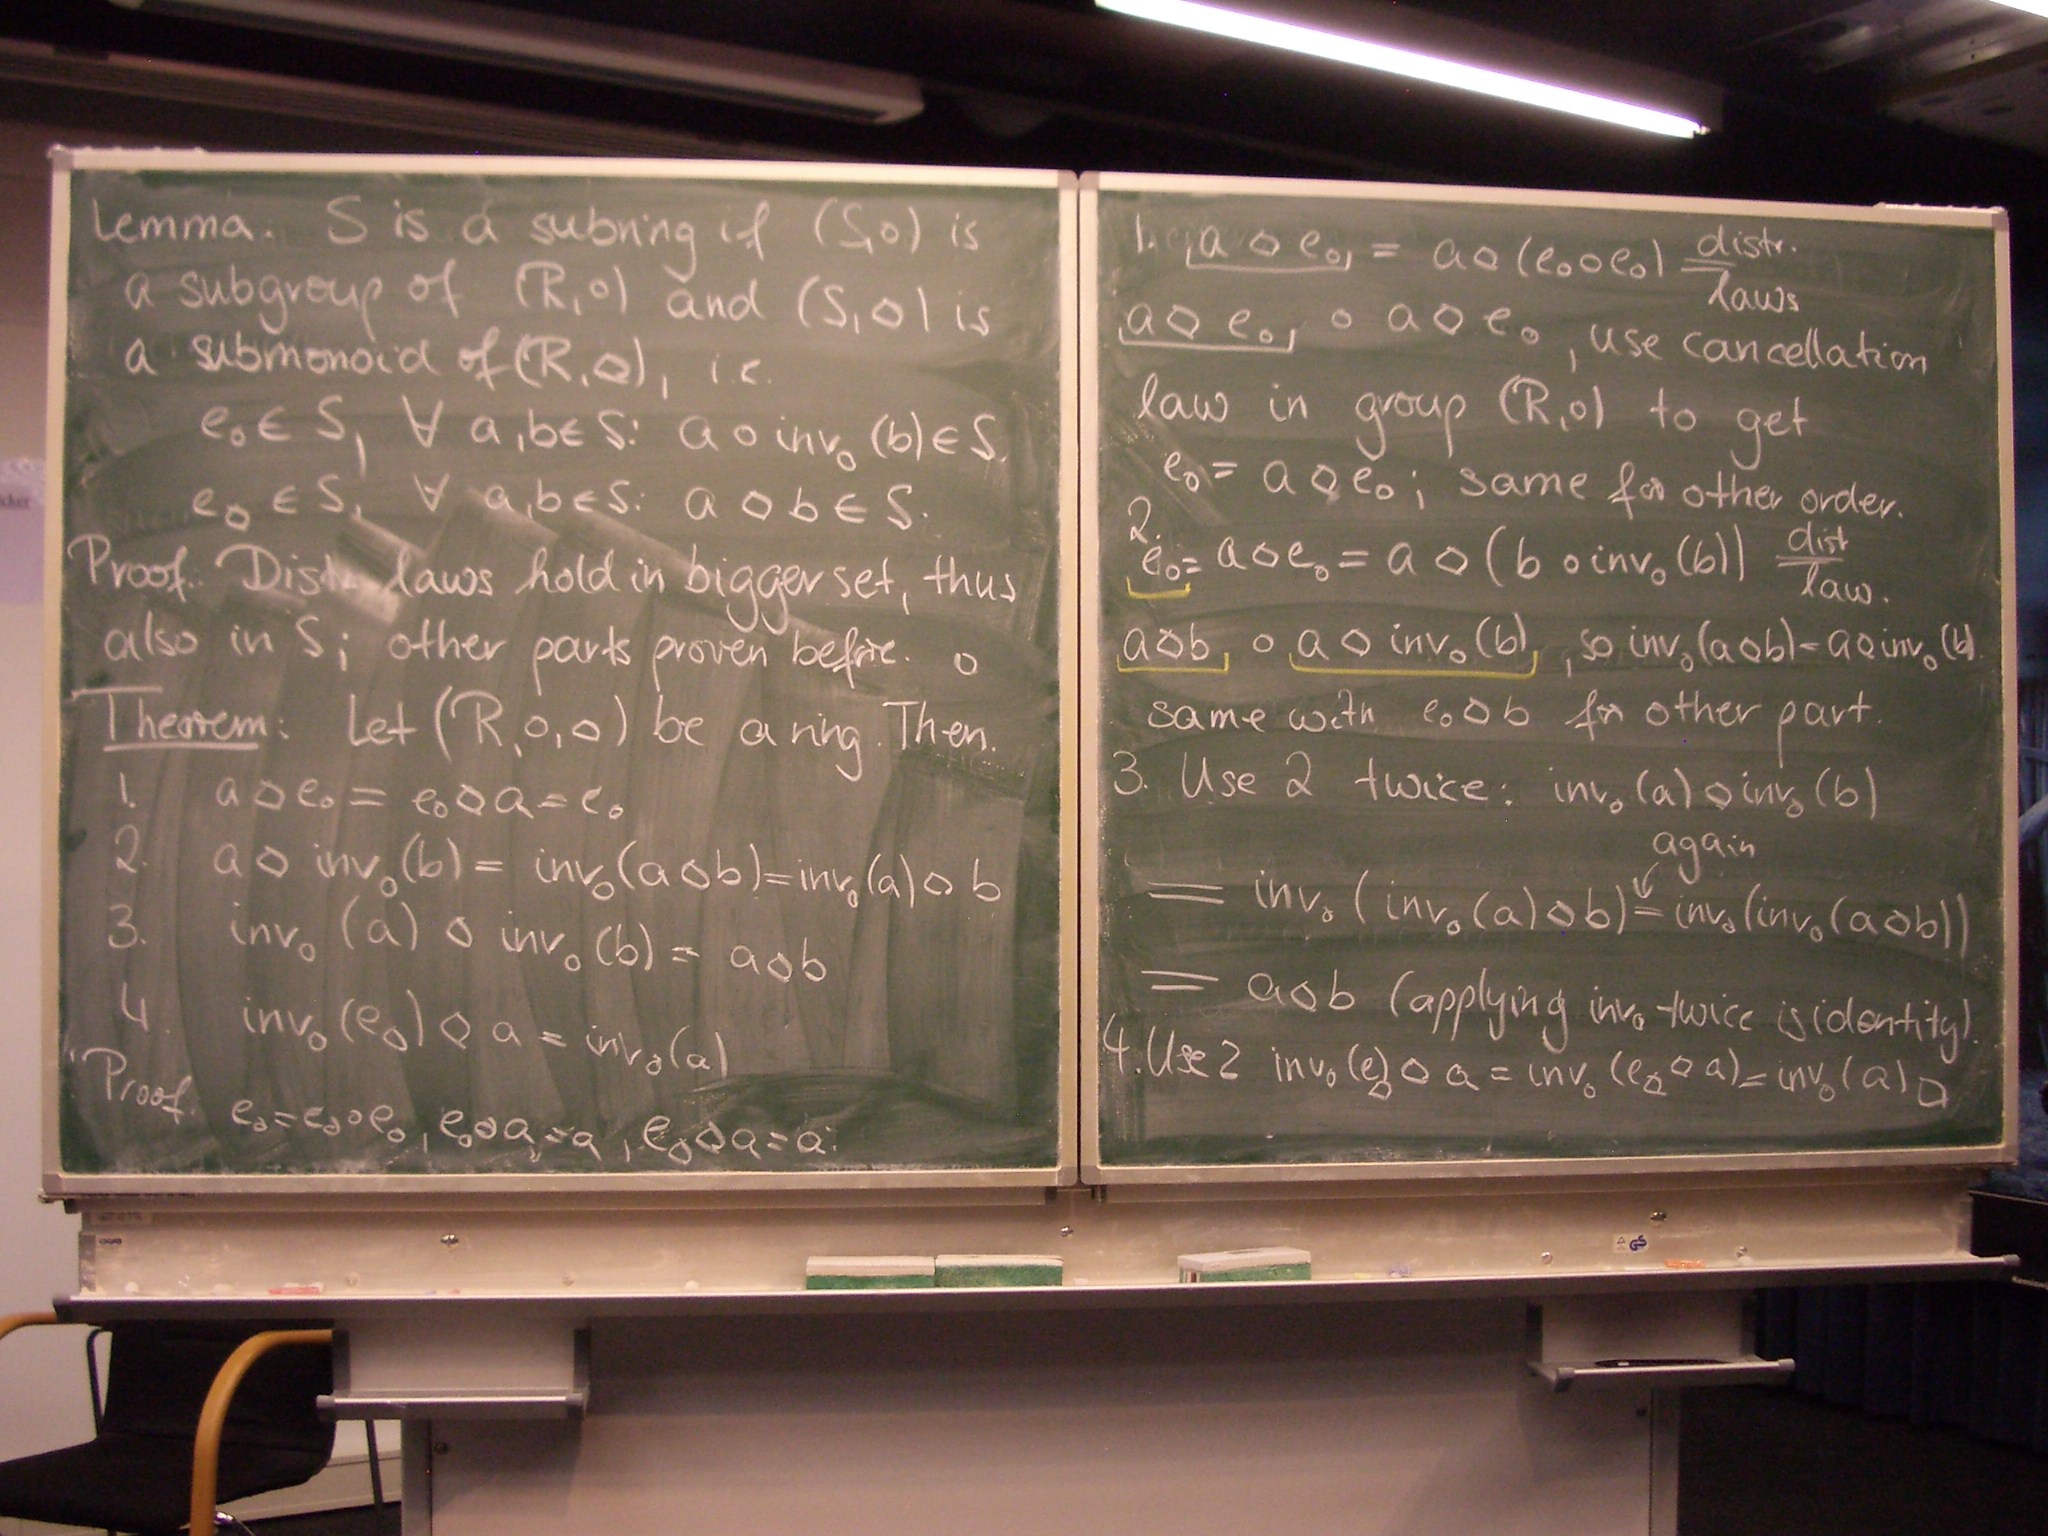 Lemma. S is a subring if (S,∘) is
a subgroup of (R,∘) and (S,◇) is
a submonoid of (R,◇), i.e.
e∘ ∈ S, ∀ a,b∈S: a∘inv∘(b)∈S.
e◇ ∈ S, ∀ a,b∈S: a◇b∈S.
Proof. Distr. laws hold in bigger set, thus
also in S; other parts proven before. ▫
Theorem: Let (R,∘,◇) be a ring. Then.
1. a◇e∘ = e∘◇a = e∘
2. a◇inv∘(b) = inv∘(a◇b) = inv∘(a)◇b
3. inv∘(a)◇inv∘(b) = a◇b
4. inv∘(e◇)◇a = inv∘(a)
Proof. e∘=e∘∘e∘, e∘∘a=a, e◇◇a=a.
1. a◇e∘ = a◇(e∘∘e∘) distr. laws =
a◇e∘ ∘ a◇e∘, use cancellation
law in group (R,∘) to get
e∘ = a◇e∘; same for other order.
2. e∘ = a◇e∘ = a◇(b∘inv∘(b)) dist law. =
a◇b ∘ a◇inv∘(b), so inv∘(a◇b)=a◇inv∘(b).
same with e∘◇b for other part.
3. Use 2 twice: inv∘(a)◇inv∘(b)
again
= inv∘(inv∘(a)◇b) = inv∘(inv∘(a◇b))
= a◇b (applying inv∘ twice is identity).
4. Use 2 inv∘(e◇)◇a = inv∘(e◇◇a) = inv∘(a) □